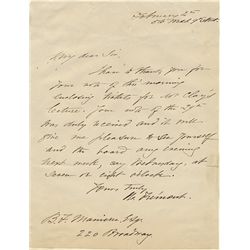 February 2nd
My dear Sir,
I have to thank you for
your note of this morning
enclosing tickets for Mr Clay's
lecture. Your note of the 29th
was duly received and it will
give me pleasure to see yourself
and the board any evening
next week, say Wednesday, at
seven or eight o'clock.
Yours truly
Frémont.
B. F. Manierre, Esq.
220 Broadway